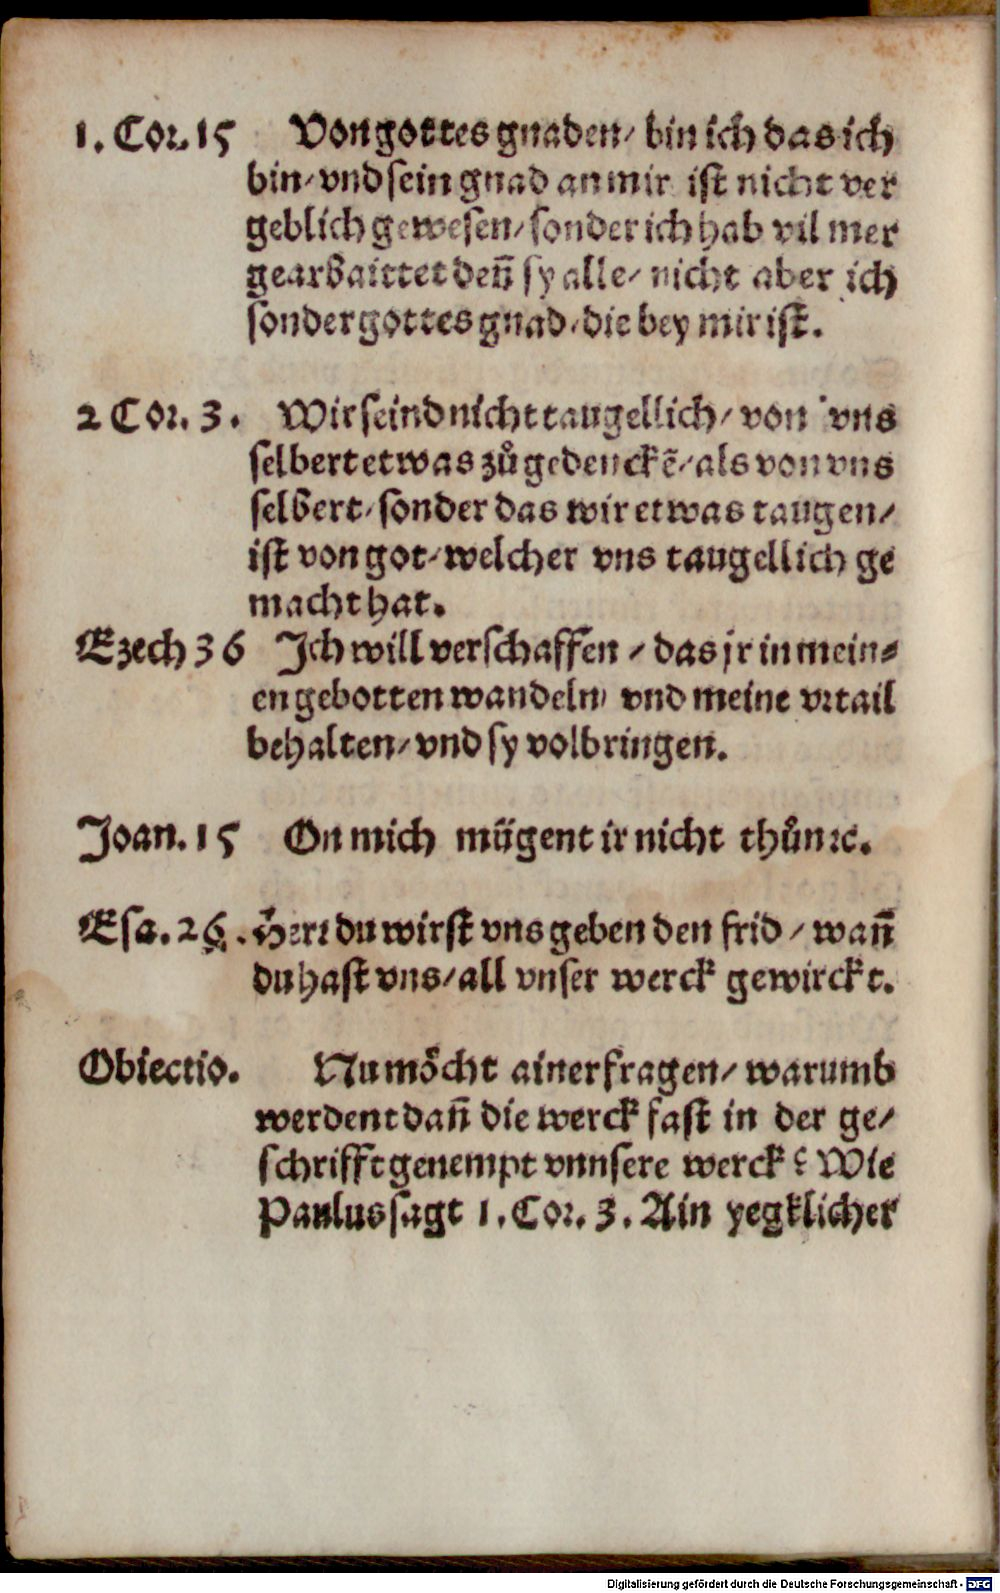 1. Cor. 15 Von gottes gnaden/ bin ich das ich
bin/ vnd sein gnad an mir ist nicht ver
geblich gewesen/ sonder ich hab vil mer
gearbaittet deñ sy alle/ nicht aber ich
sonder gottes gnad/ die bey mir ist.
2 Cor. 3. Wir seind nicht taugellich/ von vns
selbert etwas zů gedenckẽ/ als von vns
selbert/ sonder das wir etwas taugen/
ist von got/ welcher vns taugellich ge
macht hat.
Ezech 36 Ich will verschaffen/ das jr in mein⸗
en gebotten wandeln/ vnd meine vrtail
behalten/ vnd sy volbringen.
Joan. 15 On mich mügent ir nicht thůn ꝛc.
Esa. 26. Herr du wirst vns geben den frid/ wañ
du hast vns/ all vnser werck gewirckt.
Obiectio. Nu mo᷑cht ainer fragen/ warumb
werdent dañ die werck fast in der ge/
schrifft genempt vnnsere werck? Wie
Paulus sagt 1. Cor. 3. Ain yegklicher
Digitalisierung gefördert durch die Deutsche Forschungsgemeinschaft - DFG